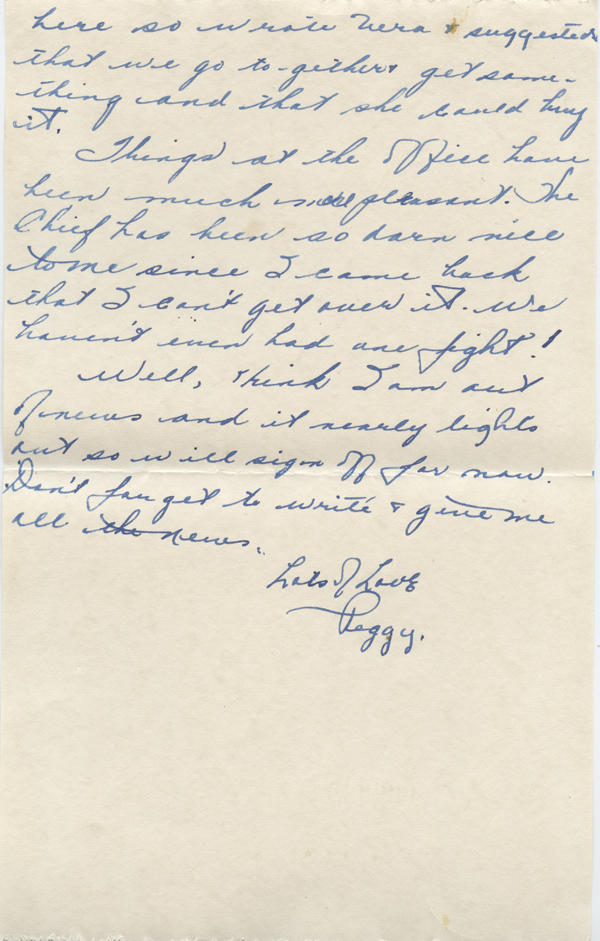 here so wrote Vera & suggested
that we go to-gether & get some-
thing and that she could buy
it.
Things at the office have
been much more pleasant. The
Chief has been so darn nice
to me since I came back
that I can't get over it. We
haven't even had one fight!
Well, think I am out
of news and it nearly lights
out so will sign off for now.
Don't forget to write & give me
all the news.
Lots of Love
Peggy.